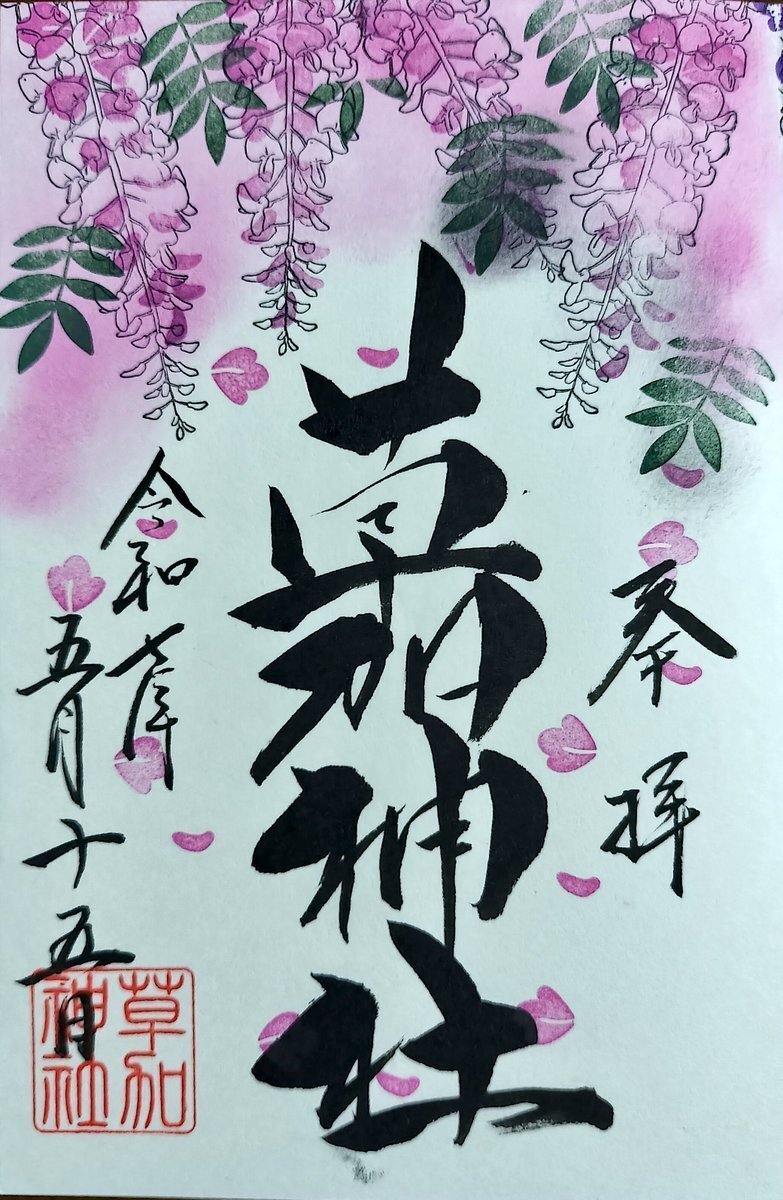 奉拝
草加神社
令和七年
五月十五日
草加
神社